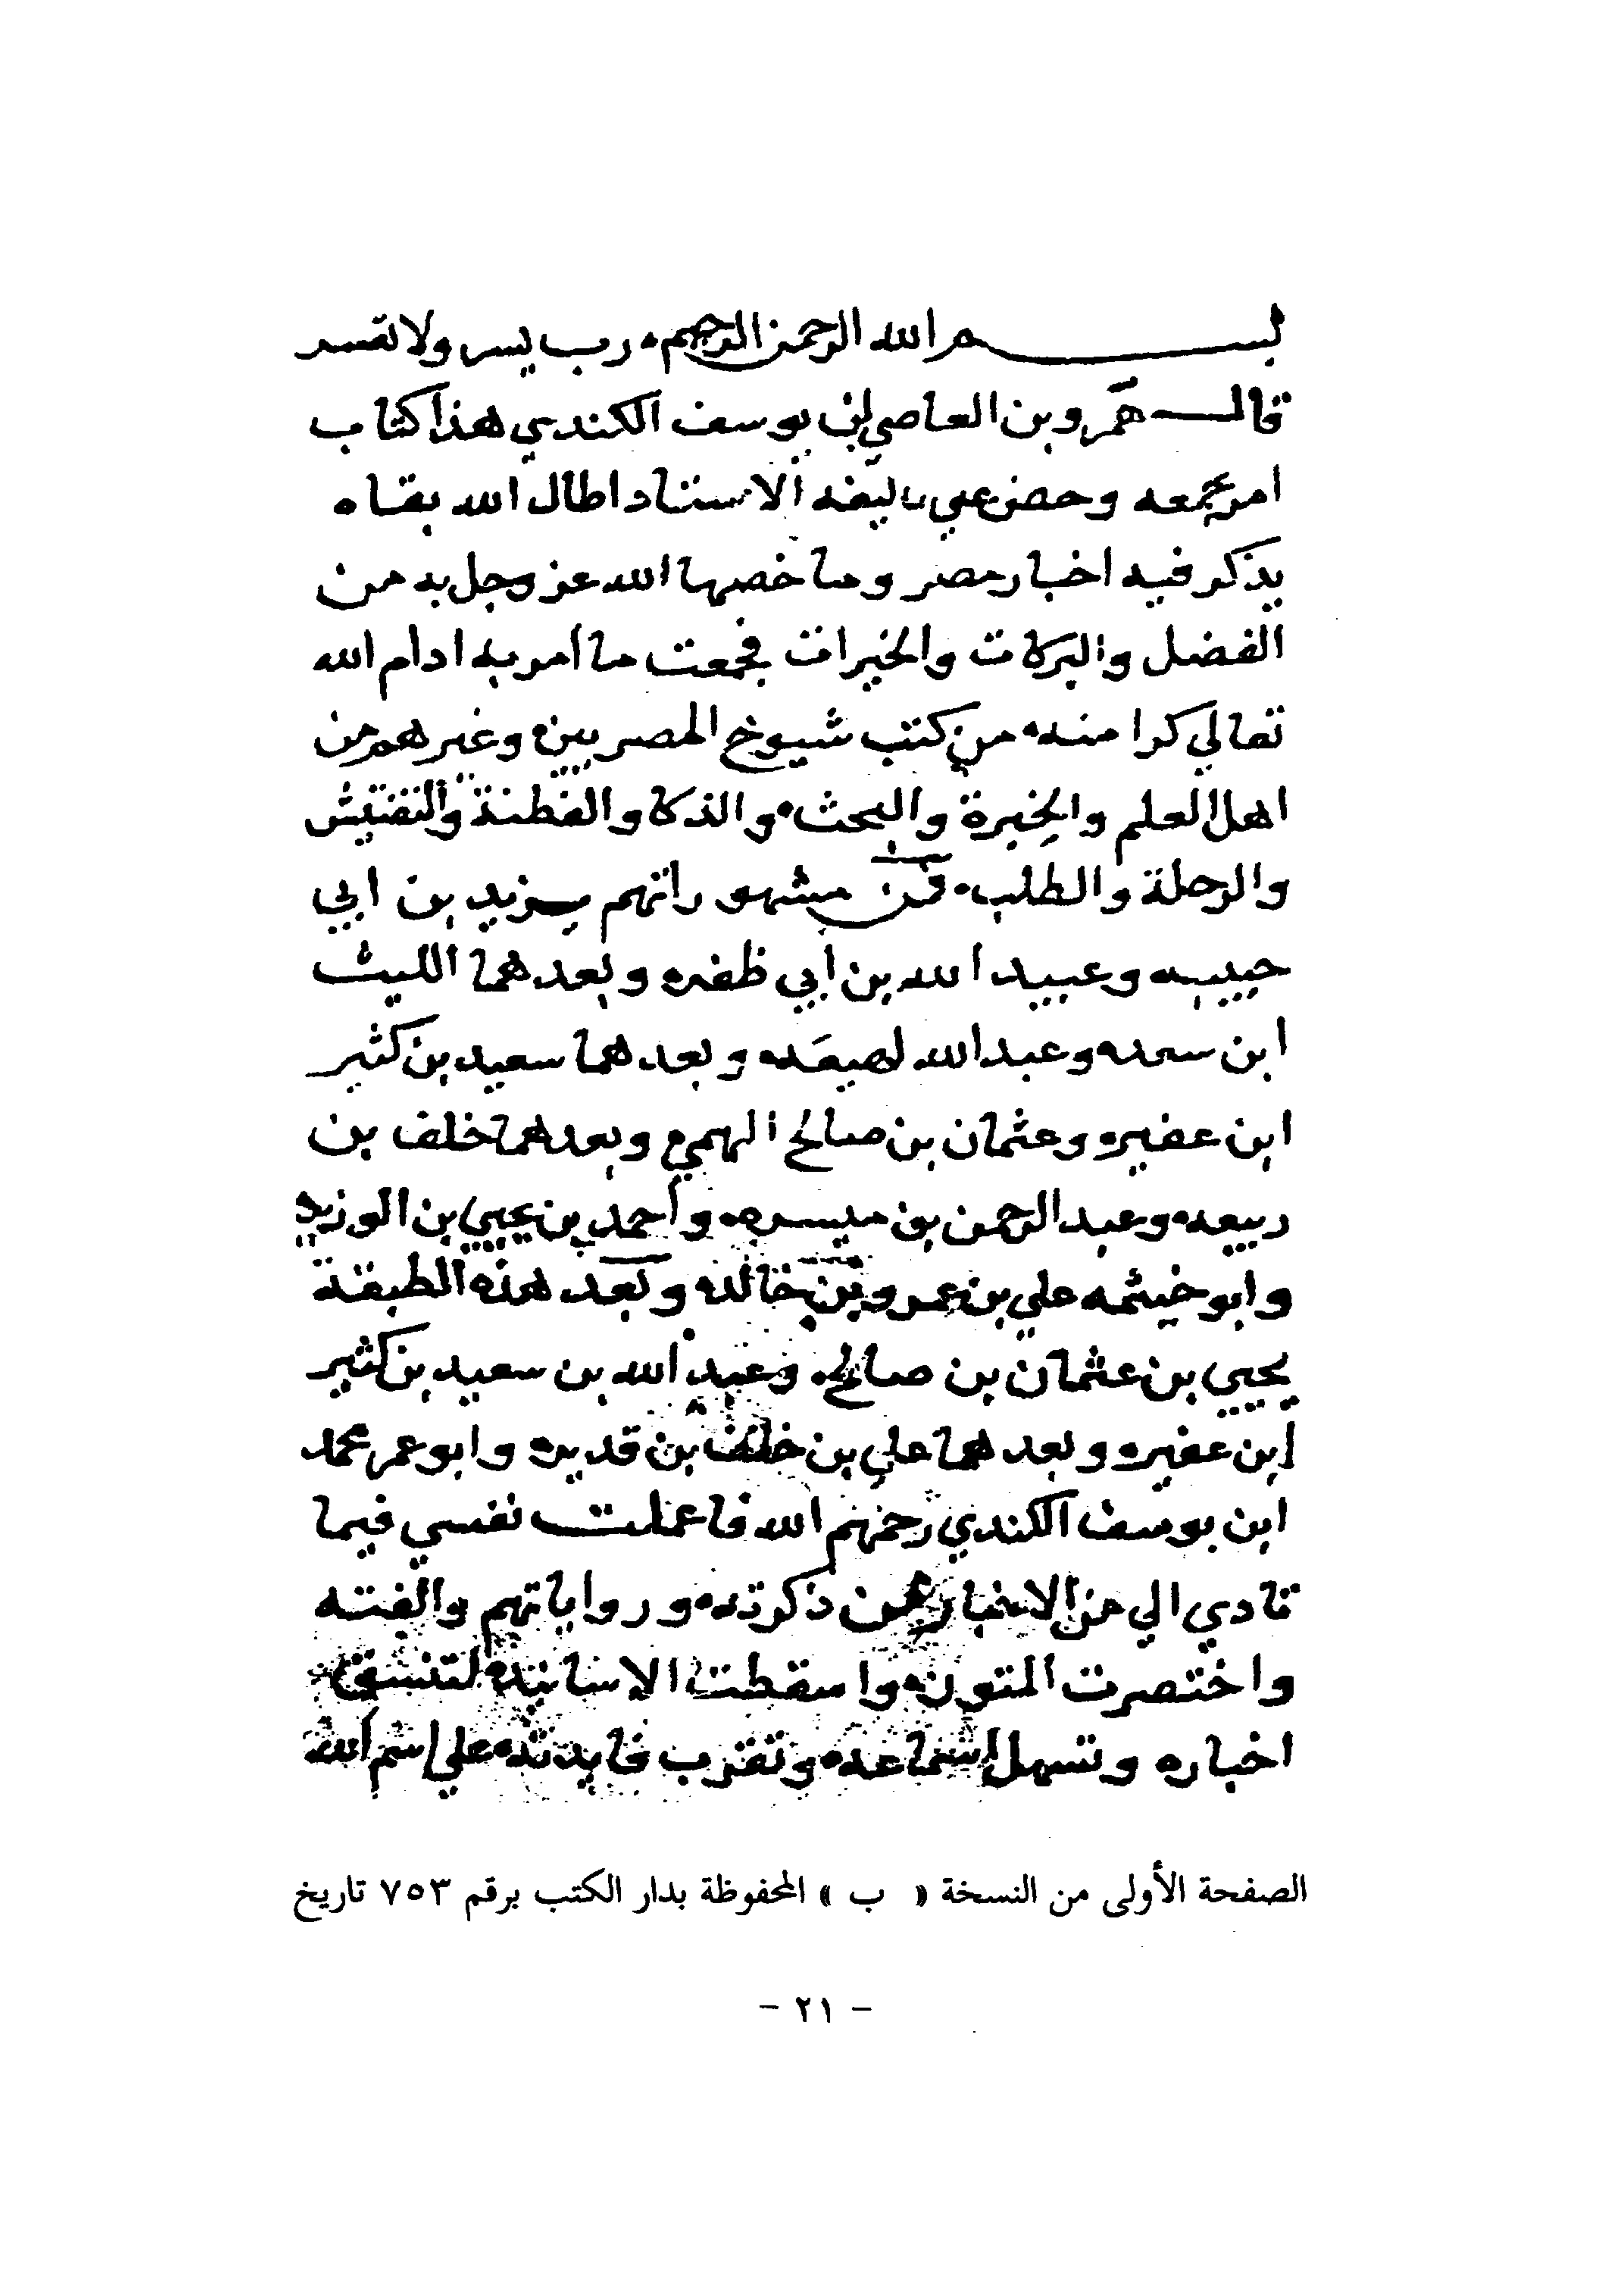 بسم الله الرحمن الرحيم رب يسر ولا تعسر
قال عمر وبن العاصي بن يوسف الكندي هذا كتاب
امر بجمعه وحضن علي تاليفه الاستاد اطال الله بقاه
يذكر فيه اخبار مصر وما خصها الله عز وجل به من
الفضل والبركات والخيرات فجمعت ما امر به ادام الله
تعالي كرا منه من كتب شيوخ المصريين وغيرهم من
اهل العلم والخبرة والبحث والذكا والفطنة والتفتيش
والرحلة والطلب فمن مشهو راتهم يزيد بن ابي
حبيبه وعبيد الله بن ابي ظفره وبعدهما الليث
ابن سعده وعبد الله لهيعه وبعدهما سعيد بن كثير
ابن عفيره وعثمان بن صالح الهمي وبعدهما خلف بن
ربيعه وعبد الرحمن بن ميسره واحمد بن يحيي بن الوزير
وابو خيثمه علي بن عمرو بن خالده وبعد هذه الطبقة
يحيي بن عثمان بن صالح وعبد الله بن سعيد بن كثير
ابن عفيره وبعدهما علي بن خلف بن قديره وابو عمر محمد
ابن يوسف الكندي رحمهم الله فاعملت نفسي فيما
تادي الي من الاخبار عمن ذكرته ورواياتهم والفته
واختصرت المتون واسقطت الاسانيد لتنسق
اخباره وتسهل استماعه وتقرب فايدته علي اسم الله
الصفحة الأولى من النسخة « ب » المحفوظة بدار الكتب برقم ٧٥٣ تاريخ
- ٢١ -